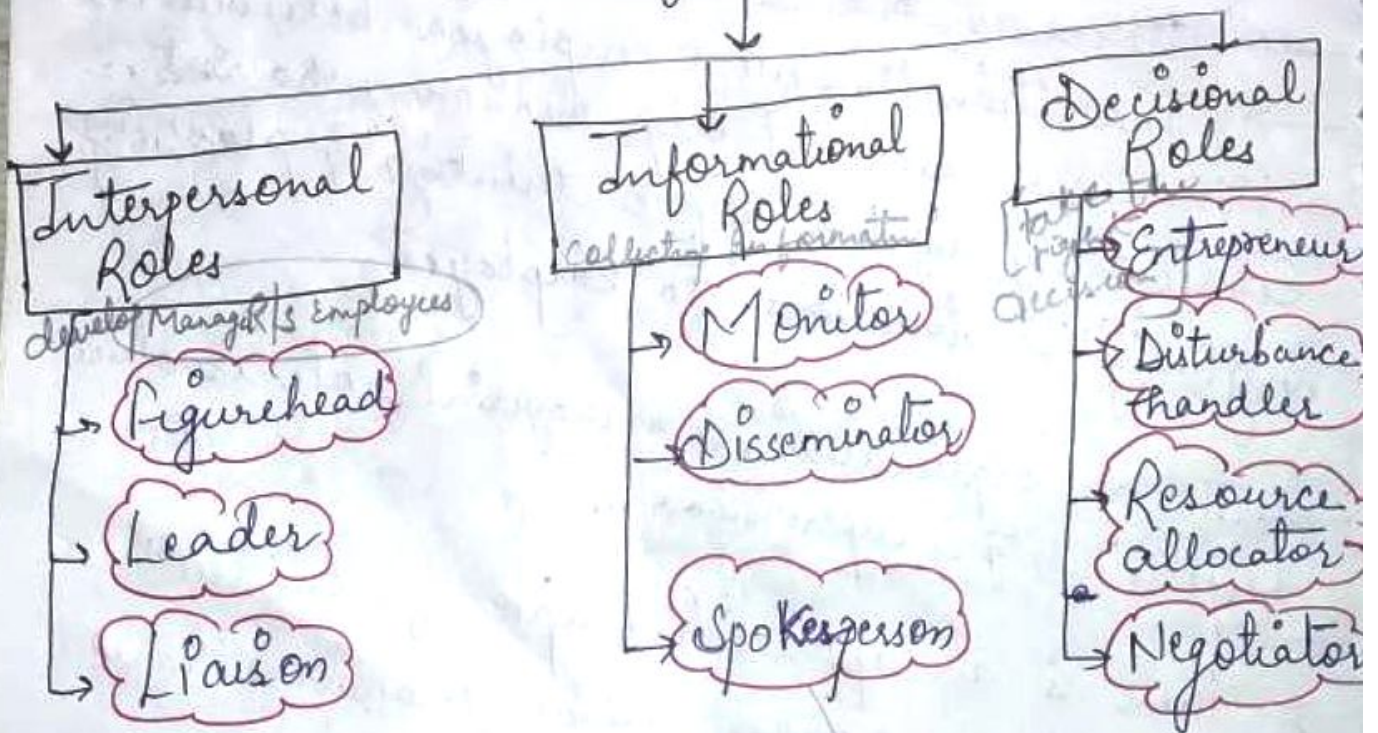 Interpersonal
Roles
develop Manager/s Employees
Figurehead
Leader
Liaison
Informational
Roles
Collecting Information
Monitor
Disseminator
Spokesperson
Decisional
Roles
take the
right
decision
Entrepreneur
Disturbance
handler
Resource
allocator
Negotiator